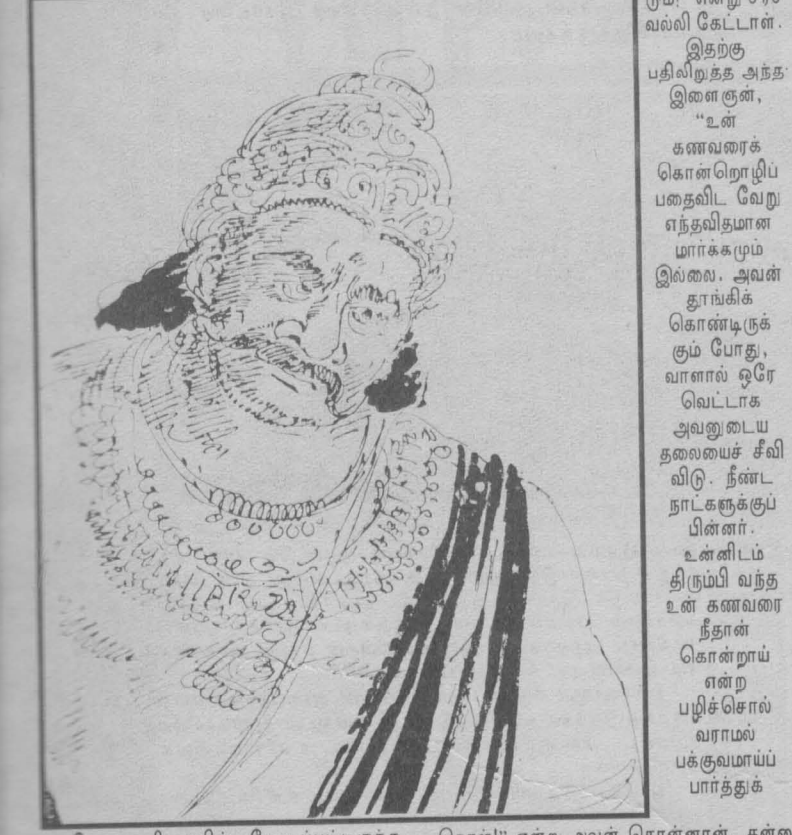 வல்லி கேட்டாள்.
இதற்கு
பதிலிறுத்த அந்த
இளைஞன்,
“உன்
கணவரைக்
கொன்றொழிப்
பதைவிட வேறு
எந்தவிதமான
மார்க்கமும்
இல்லை. அவன்
தூங்கிக்
கொண்டிருக்
கும் போது,
வாளால் ஒரே
வெட்டாக
அவனுடைய
தலையைச் சீவி
விடு. நீண்ட
நாட்களுக்குப்
பின்னர்.
உன்னிடம்
திரும்பி வந்த
உன் கணவரை
நீதான்
கொன்றாய்
என்ற
பழிச்சொல்
வராமல்
பக்குவமாய்ப்
பார்த்துக்
என்று அவன் சொன்னான்.